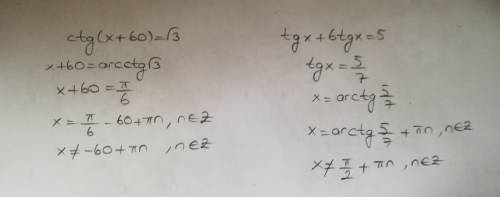 ctg(x+60)=√3
x+60=arcctg√3
x+60=π/6
x=π/6-60+πn, n∈Z
x≠-60+πn, n∈Z
tgx+6tgx=5
tgx=5/7
x=arctg 5/7
x=arctg 5/7+πn, n∈Z
x≠π/2+πn, n∈Z